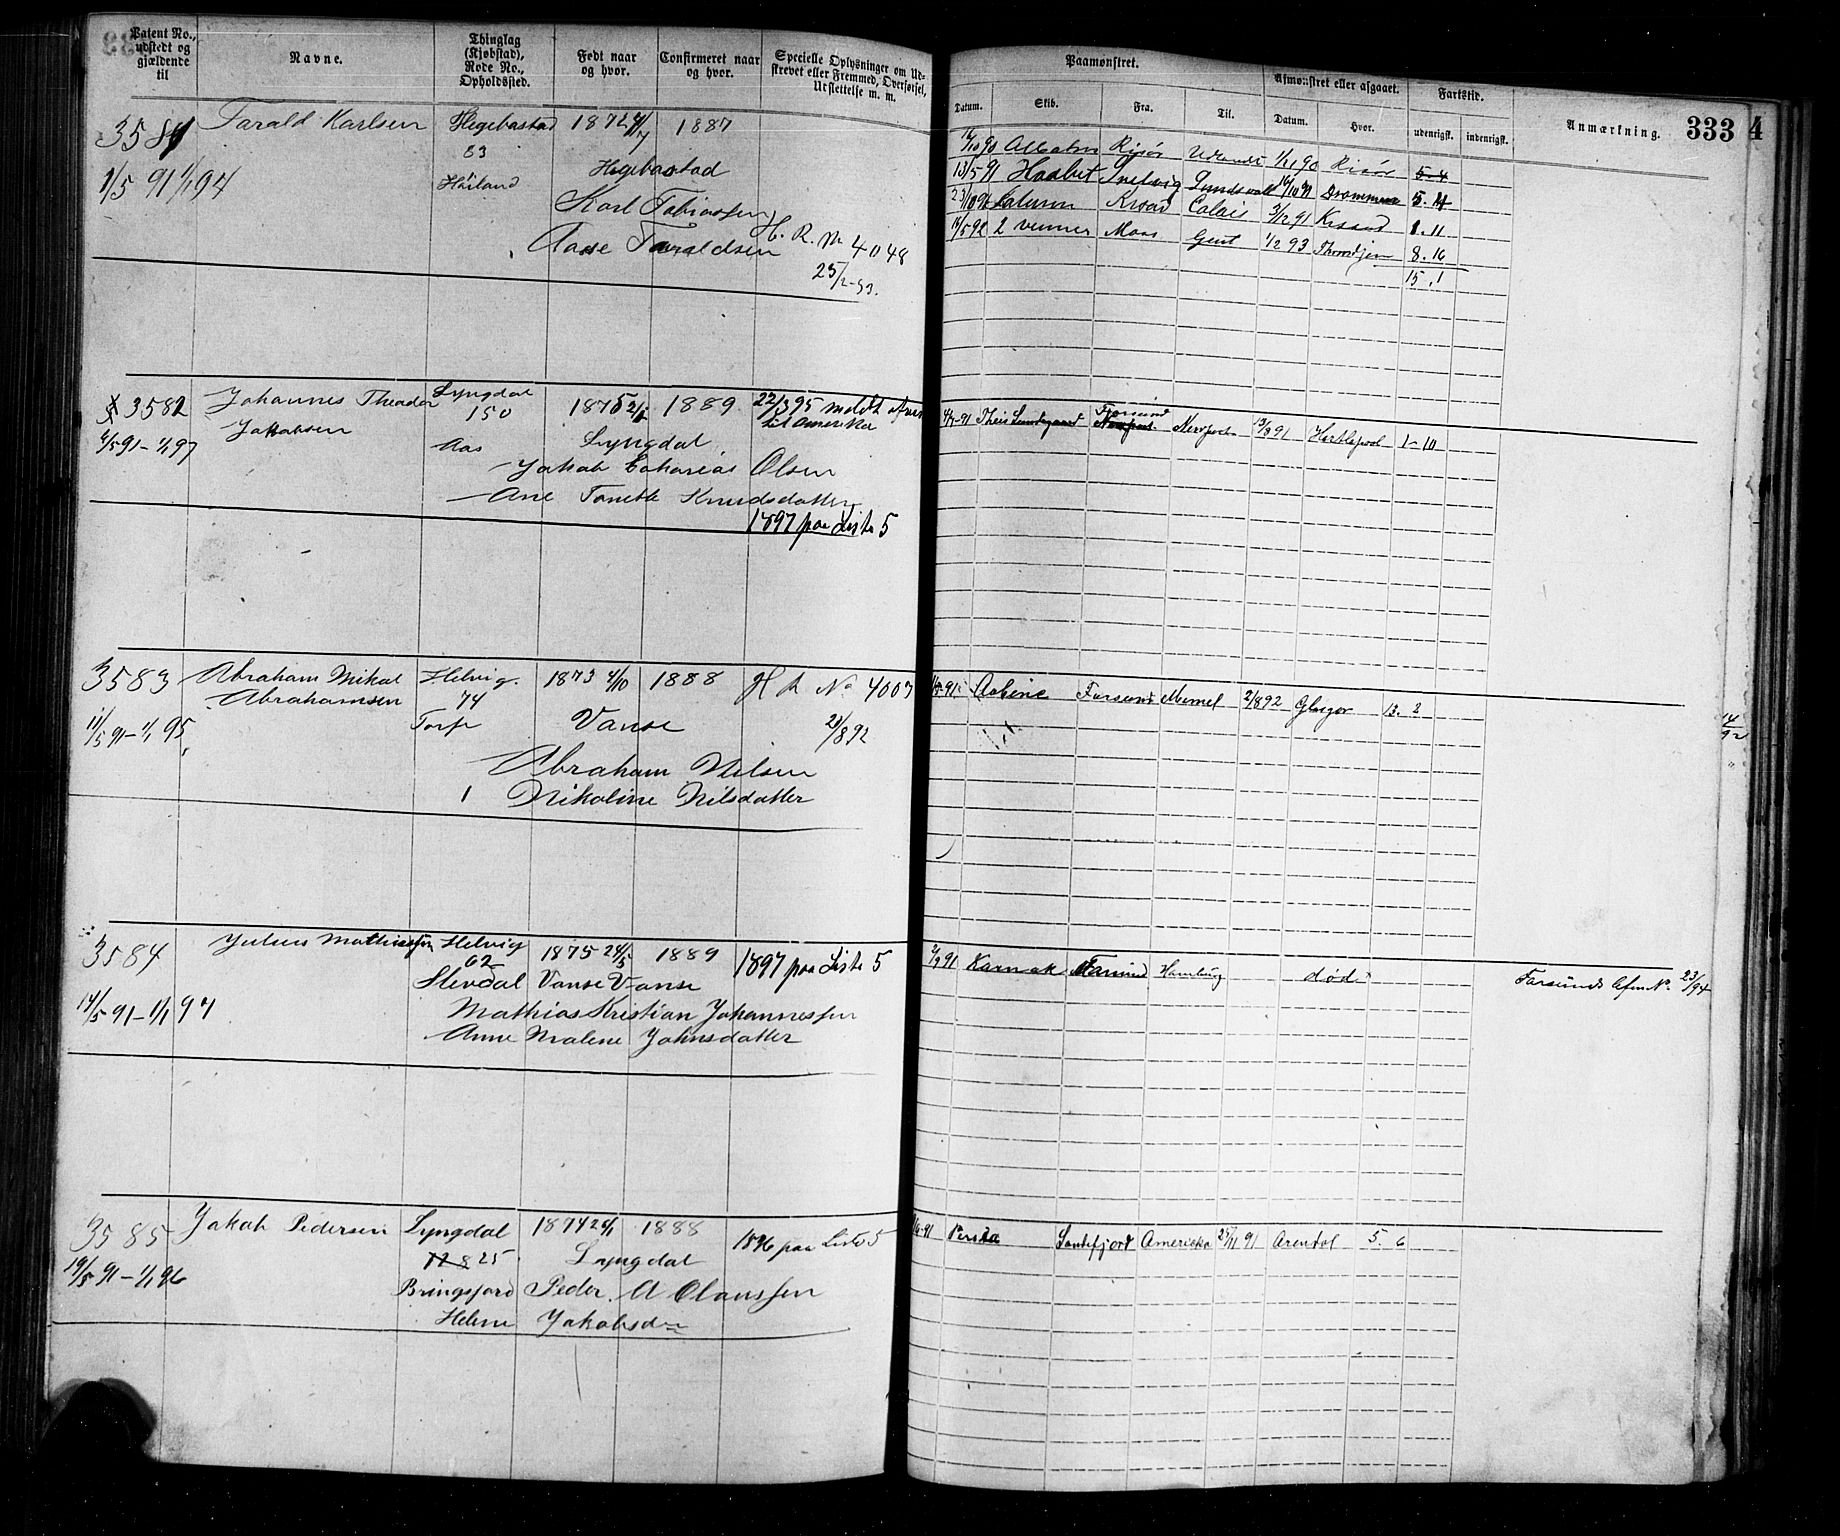 Patent No., udstedt og gjældende til
Navne.
Thinglag (Kjøbstad), Rode No., Opholdssted.
Født naar og hvor.
Confirmeret naar og hvor.
Specielle Oplysninger om Udskrevet eller Fremmed, Overførsel, Udslettelse m. m.
Paamønstret.
Datum.
Skib.
Fra.
Til.
Afmønstret eller afgaaet.
Datum.
Hvor.
Fartstid.
udenrigsk.
indenrigsk.
Anmærkning.
333
4
3581
Tarald Karlsen
Hegebostad
1872 4/7
1887
83
1/5 91 1/1 94
Håiland
Hegebostad
Karl Tobiassen
Aase Taraldsen
H. R. No 4048
25/2-93.
90
Risør
1/11 90
Risør
5-4
13/5 91
Haabet
Snelvig
Sundsvall
16/10 91
Drammen
5. 4
Calais
3/12 91
Krsand
1. 11
92
2 venner
Moss
Gent
1/2 93
Throndhjem
8. 16
15. 1
3582
Johannes Theodor
Lyngdal
1875
1889
22/3 95 meldt
150
til Amerika
Jakobsen
6/5 91 - 1/1 97
Aas
Lyngdal
Jakob Zakarias Olsen
Ane Tonette Knudsdatter
1897 paa Liste 5
4/7-91
Theis Lundegaard
Farsund
Newport
Newport
13/9 91
Hartlepool
1-10
3583
Abraham Mikal
Helvig.
1873 4/10
1888
H R No 4007
Abrahamsen
74
11/5 91 - 1/1 95
Torp
Vanse
29/8 92
Abraham Nilsen
1 Nikoline Nilsdatter
Farsund
Memel
2/8 92
Glasgow
13. 2
14/92
3584
Julius Mathiassen
Helvig
1875 24/5
1889
1897 paa Liste 5
62
Stendal
Vanse
Vanse
14/5 91 - 1/1 97
Mathias Kristian Johannessen
Anne Malene Johnsdatter
2/9 91
Karnak
Farsund
Hamburg
død
Farsunds Afm No. 23/94
3585
Jakob Pedersen
Lyngdal
1874 26/1
1888
1896 paa Liste 5
128 25
Lyngdal
19/5 91 - 1/1 96
Bringsjord
Peder A Olaussen
Helene
Jakobsd
Persia
Sandefjord
Amerika
25/11 91
Arendal
5. 6